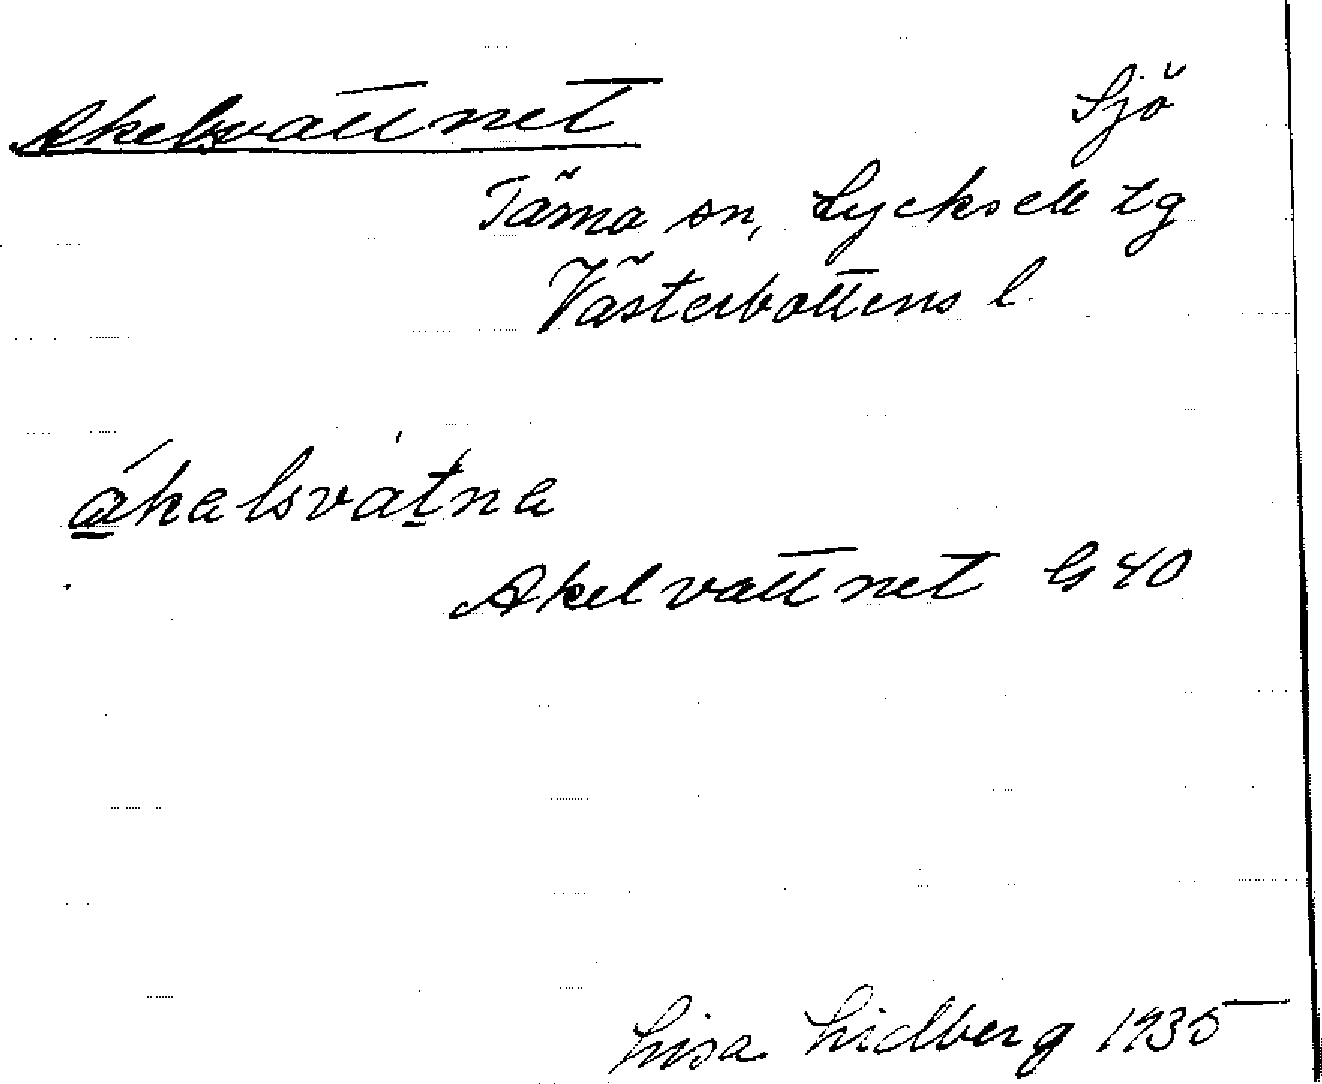 Akelsvattnet
Sjö
Tärna sn, Lycksele tg
Västerbottens l.
ákalsvàtna
Akelvattnet G 40
Lisa Lidberg 1935